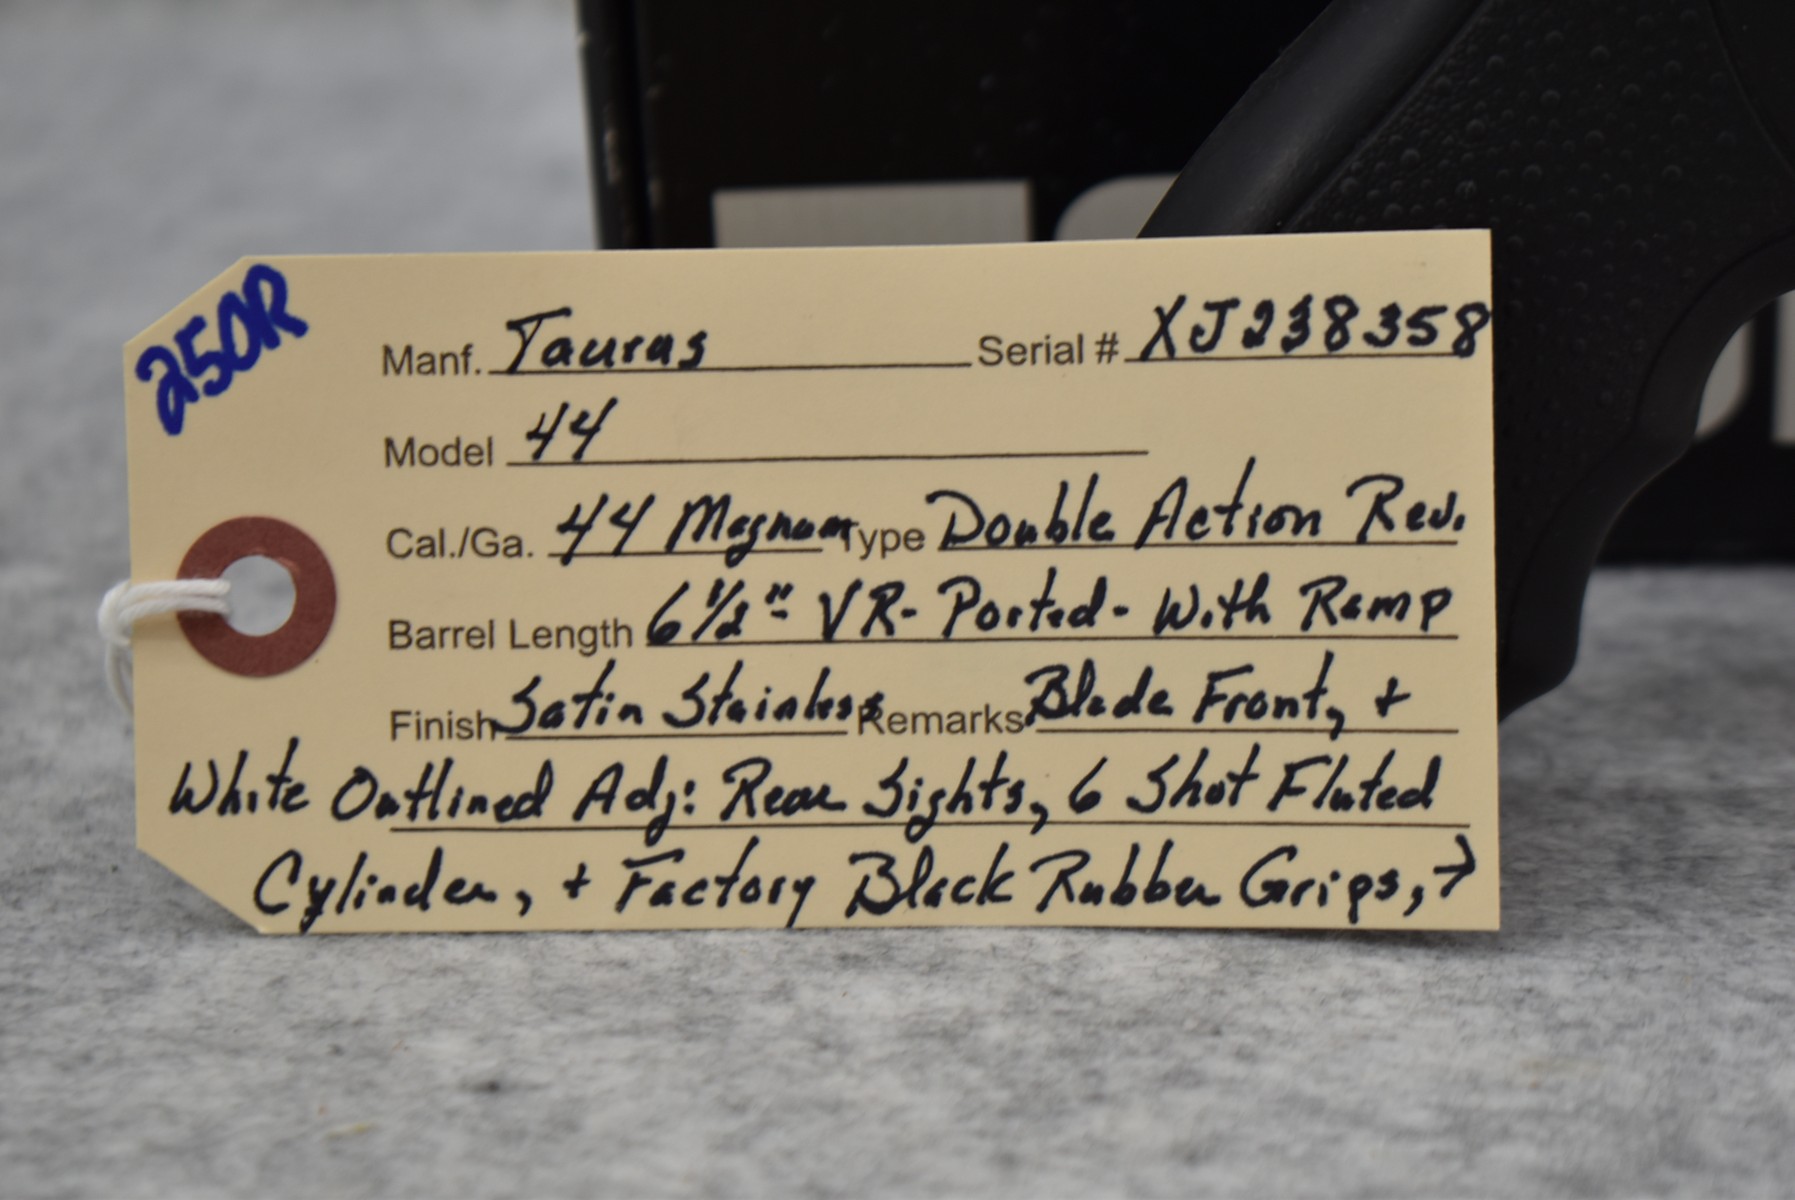 250R
Manf. Taurus Serial # XJ238358
Model 44
Cal./Ga. 44 Magnum Type Double Action Rev.
Barrel Length 6 1/2" VR- Ported- With Ramp
Finish Satin Stainless Remarks Blade Front, +
White Outlined Adj: Rear Sights, 6 Shot Fluted
Cylinder, + Factory Black Rubber Grips, →